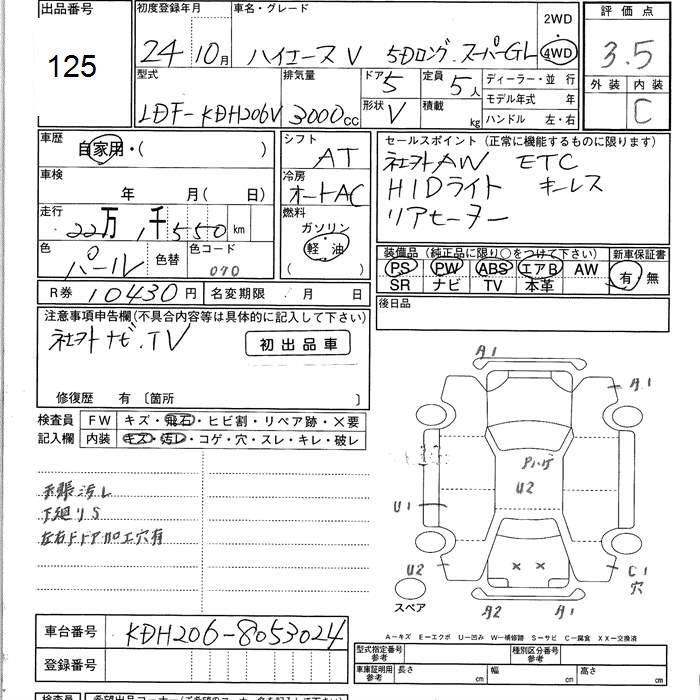 出品番号 初度登録年月 車名・グレード 2WD 評価点
125 24 10月 ハイエースV 5Dロング.スーパーGL 4WD 3.5
型式 排気量 ドア 5 定員 5人 ディーラー・並行 外装 内装
LDF-KDH206V 3000cc 形状 V 積載 kg モデル年式 年 C
ハンドル 左・右
車歴 自家用・( ) シフト AT セールスポイント (正常に機能するものに限ります)
車検 年 月( 日) 冷房 オートAC 社外AW ETC
走行 22万 1千550km 燃料 ガソリン・軽油 ( ) HIDライト キーレス
リアヒーター
色 パール 色替 色コード 070 装備品 (純正品に限り○をつけて下さい) 新車保証書
PS PW ABS エアB AW 有・無
R券 10430円 名変期限 月 日 SR ナビ TV 本革
後日品
注意事項申告欄(不具合内容等は具体的に記入して下さい)
社外ナビ.TV 初出品車
修復歴 有 〔箇所 〕
検査員 FW キズ・飛石・ヒビ割・リペア跡・×要
記入欄 内装 キズ・汚レ・コゲ・穴・スレ・キレ・破レ
天張汚レ
下廻りS
左右Fドア加工穴有
A1
A1
U2
U1
U2 C1
穴
スペア A2 A1
A-キズ E-エクボ U-凹み W-補修跡 S-サビ C-腐食 XX-交換済
車台番号 KDH206-8053024
登録番号
型式指定番号 参考 種別区分番号 参考
車庫証明用 参考 長さ cm 幅 cm 高さ cm